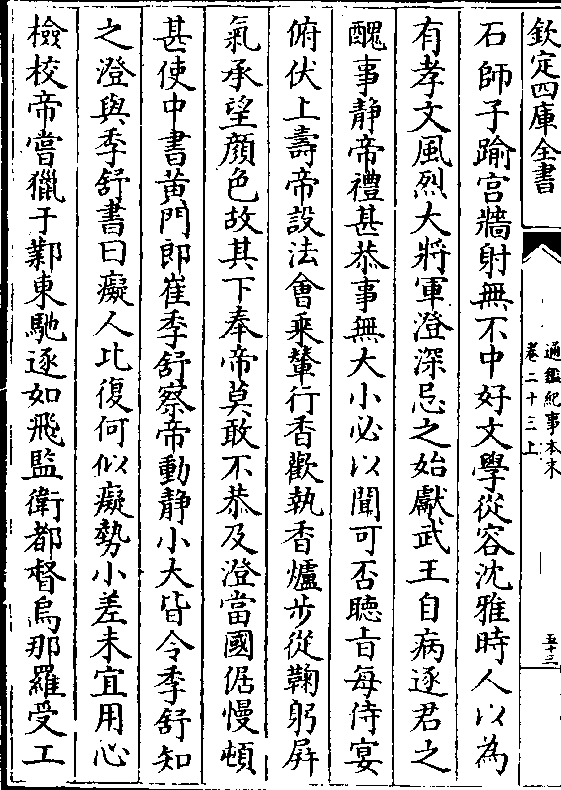 欽定四庫全書
通鑑紀事本末
卷二十三上
五十三
石師子踰宫牆射無不中好文學從容沈雅時人以為
有孝文風烈大將軍澄深忌之始獻武王自病逐君之
醜事静帝禮甚恭事無大小必以聞可否聽㫖每侍宴
俯伏上壽帝設法會乗輦行香歡執香爐步從鞠躬屛
氣承望顔色故其下奉帝莫敢不恭及澄當國倨慢頓
甚使中書黄門郎崔季舒察帝動静小大皆令季舒知
之澄與季舒書曰癡人比復何似癡勢小差未宜用心
檢校帝嘗獵于鄴東馳逐如飛監衛都督烏那羅受工